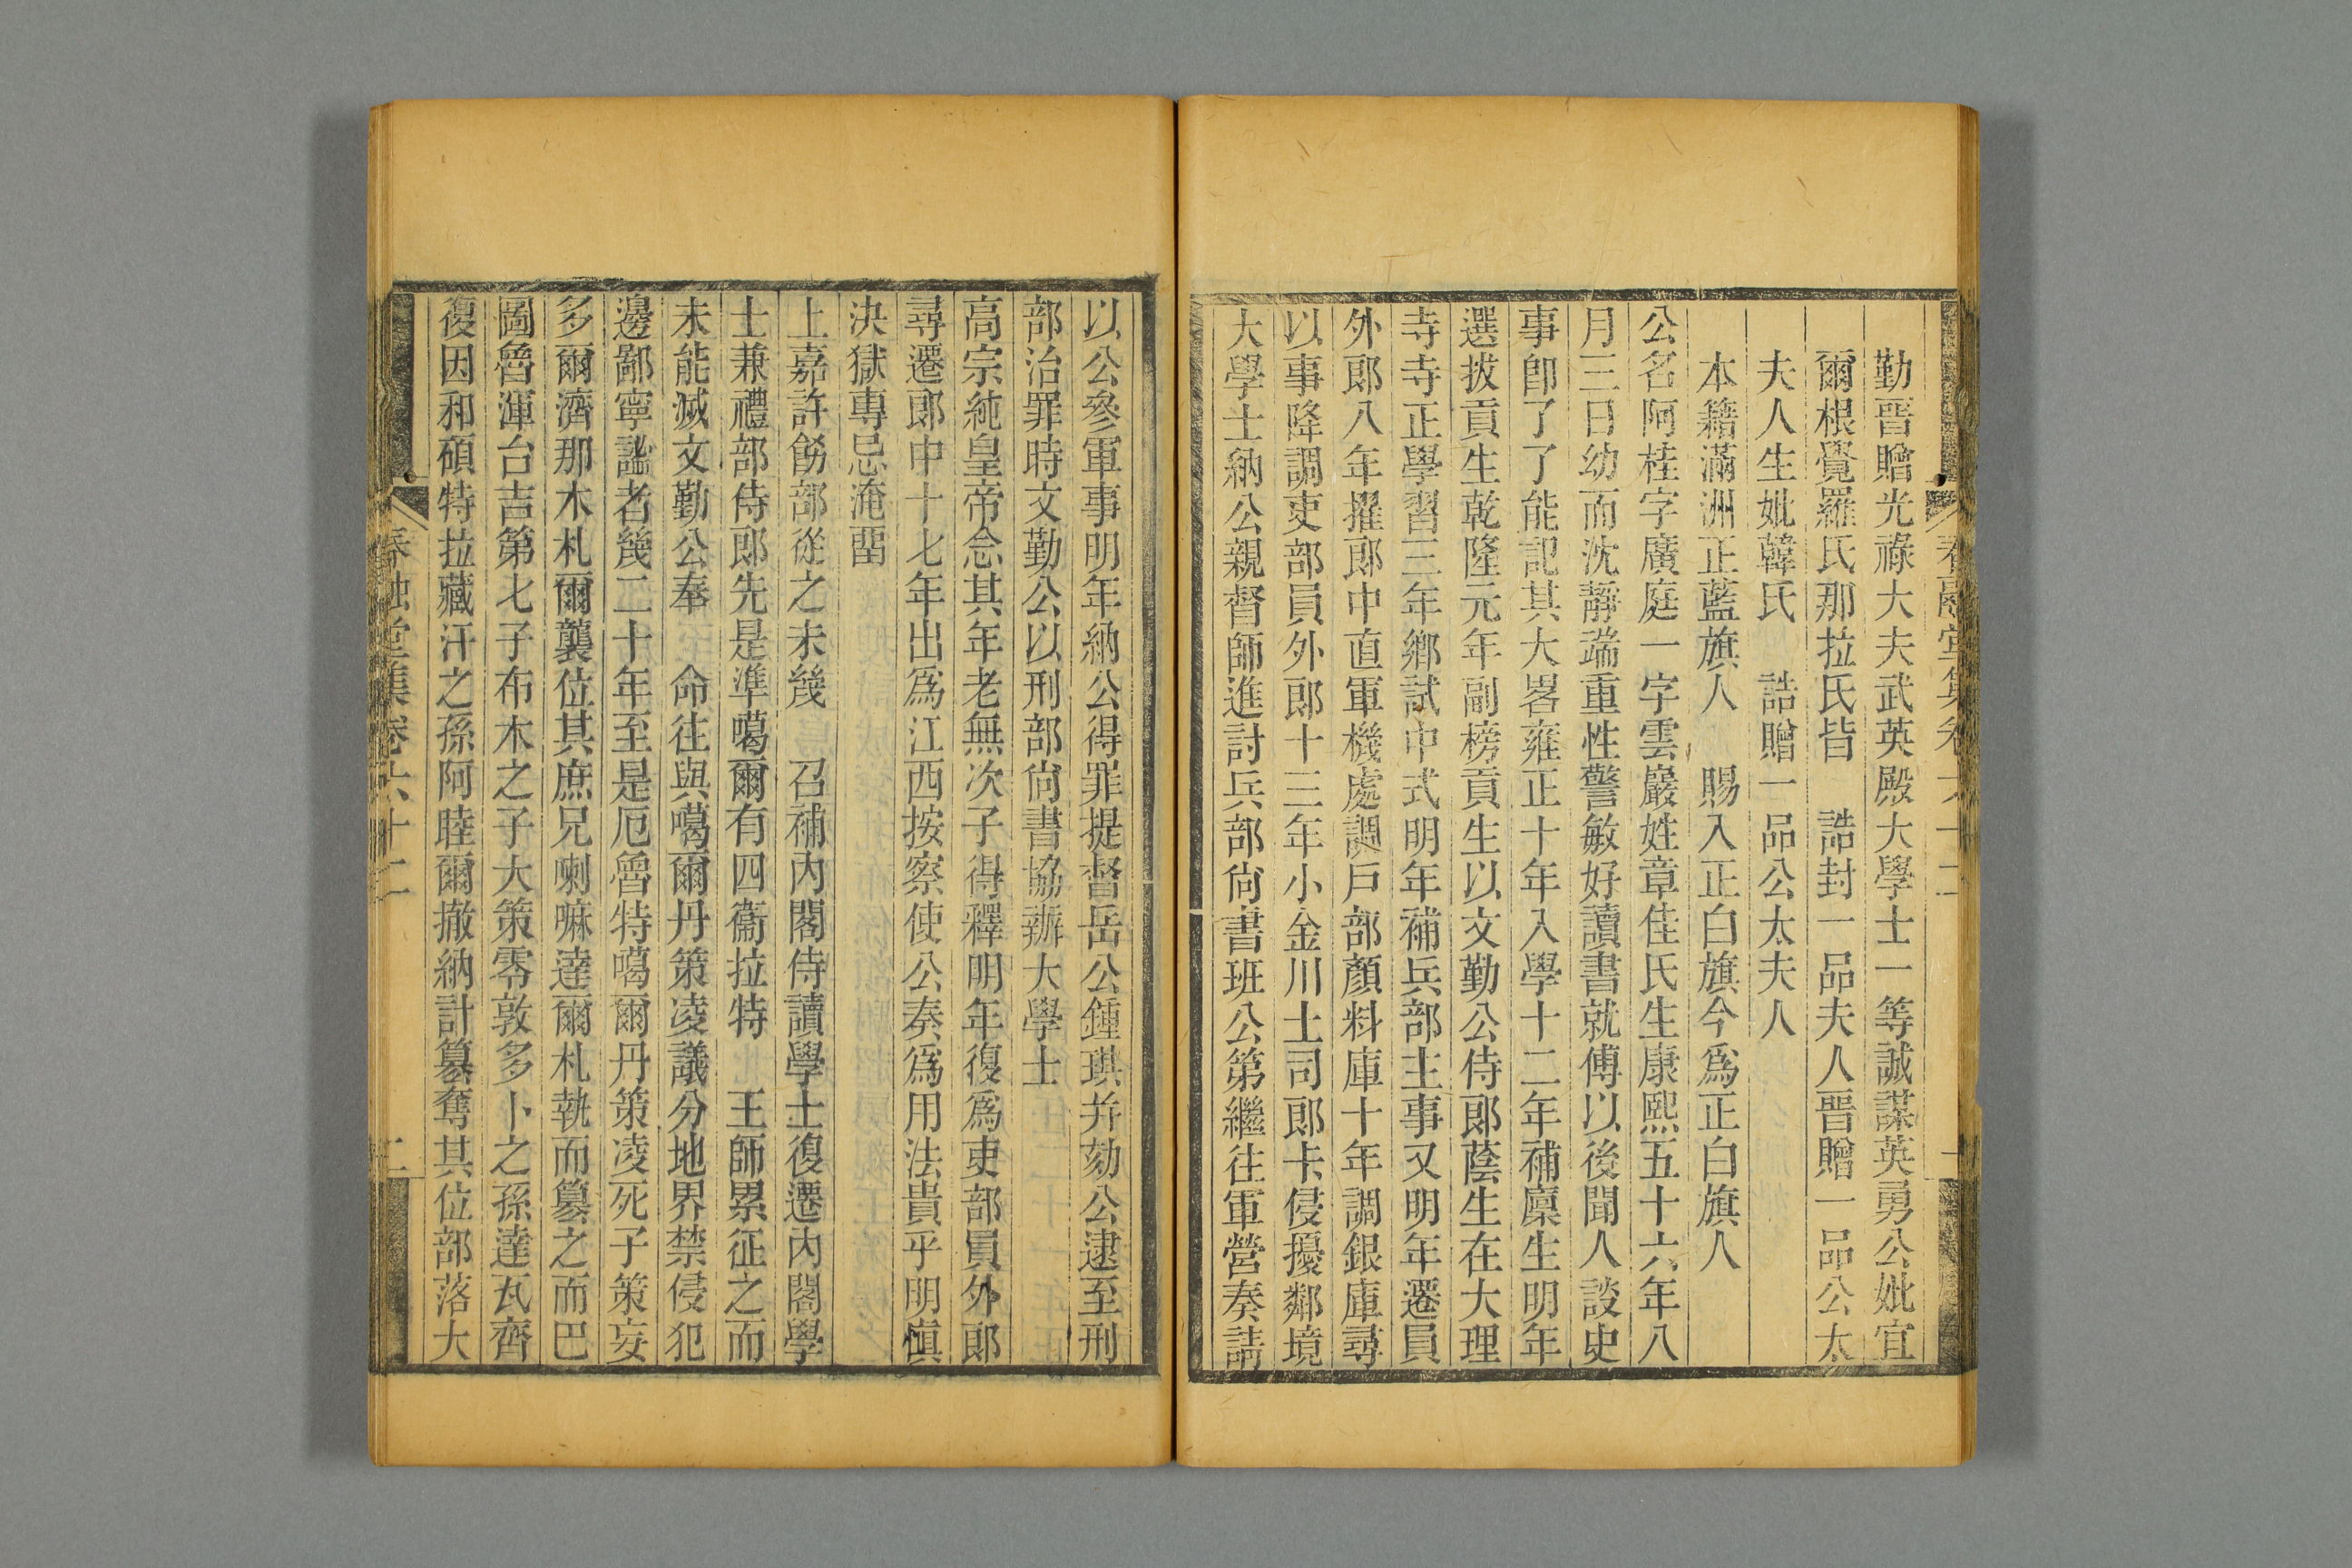 勤晉贈光祿大夫武英殿大學士一等誠謀英勇公妣宜
爾根覺羅氏那拉氏皆　誥封一品夫人晉贈一品公太
夫人生妣韓氏　誥贈一品公太夫人
本籍滿洲正藍旗人　賜入正白旗今爲正白旗人
公名阿桂字廣庭一字雲巖姓章佳氏生康熙五十六年八
月三日幼而沈靜端重性警敏好讀書就傅以後聞人談史
事卽了了能記其大畧雍正十年入學十二年補廩生明年
選拔貢生乾隆元年副榜貢生以文勤公侍郞蔭生在大理
寺寺正學習三年鄉試中式明年補兵部主事又明年遷員
外郞八年擢郞中直軍機處調戶部顏料庫十年調銀庫尋
以事降調吏部員外郞十三年小金川土司郞卡侵擾鄰境
大學士納公親督師進討兵部尙書班公第繼往軍營奏請
以公參軍事明年納公得罪提督岳公鍾琪并劾公逮至刑
部治罪時文勤公以刑部尙書協辦大學士
高宗純皇帝念其年老無次子得釋明年復爲吏部員外郞
尋遷郞中十七年出爲江西按察使公奏爲用法貴乎明愼
決獄專忌淹㽞
上嘉許飭部從之未幾　召補內閣侍讀學士復遷內閣學
士兼禮部侍郞先是準噶爾有四衞拉特　王師累征之而
未能滅文勤公奉　命往與噶爾丹策凌議分地界禁侵犯
邊鄙寧謐者幾二十年至是厄魯特噶爾丹策凌死子策妄
多爾濟那木札爾襲位其庶兄喇嘛達爾札執而篡之而巴
圖魯渾台吉第七子布木之子大策零敦多卜之孫達瓦齊
復因和碩特拉藏汗之孫阿睦爾撤納計篡奪其位部落大
春融堂集卷六十二
二